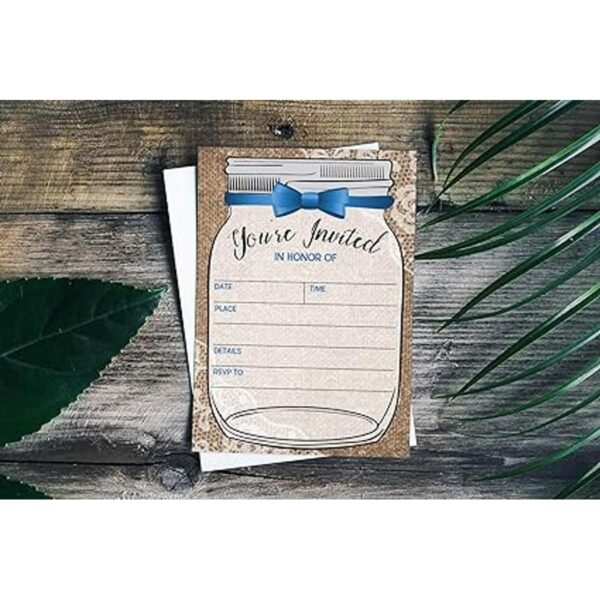 You're Invited
IN HONOR OF
DATE TIME
PLACE
DETAILS
RSVP TO